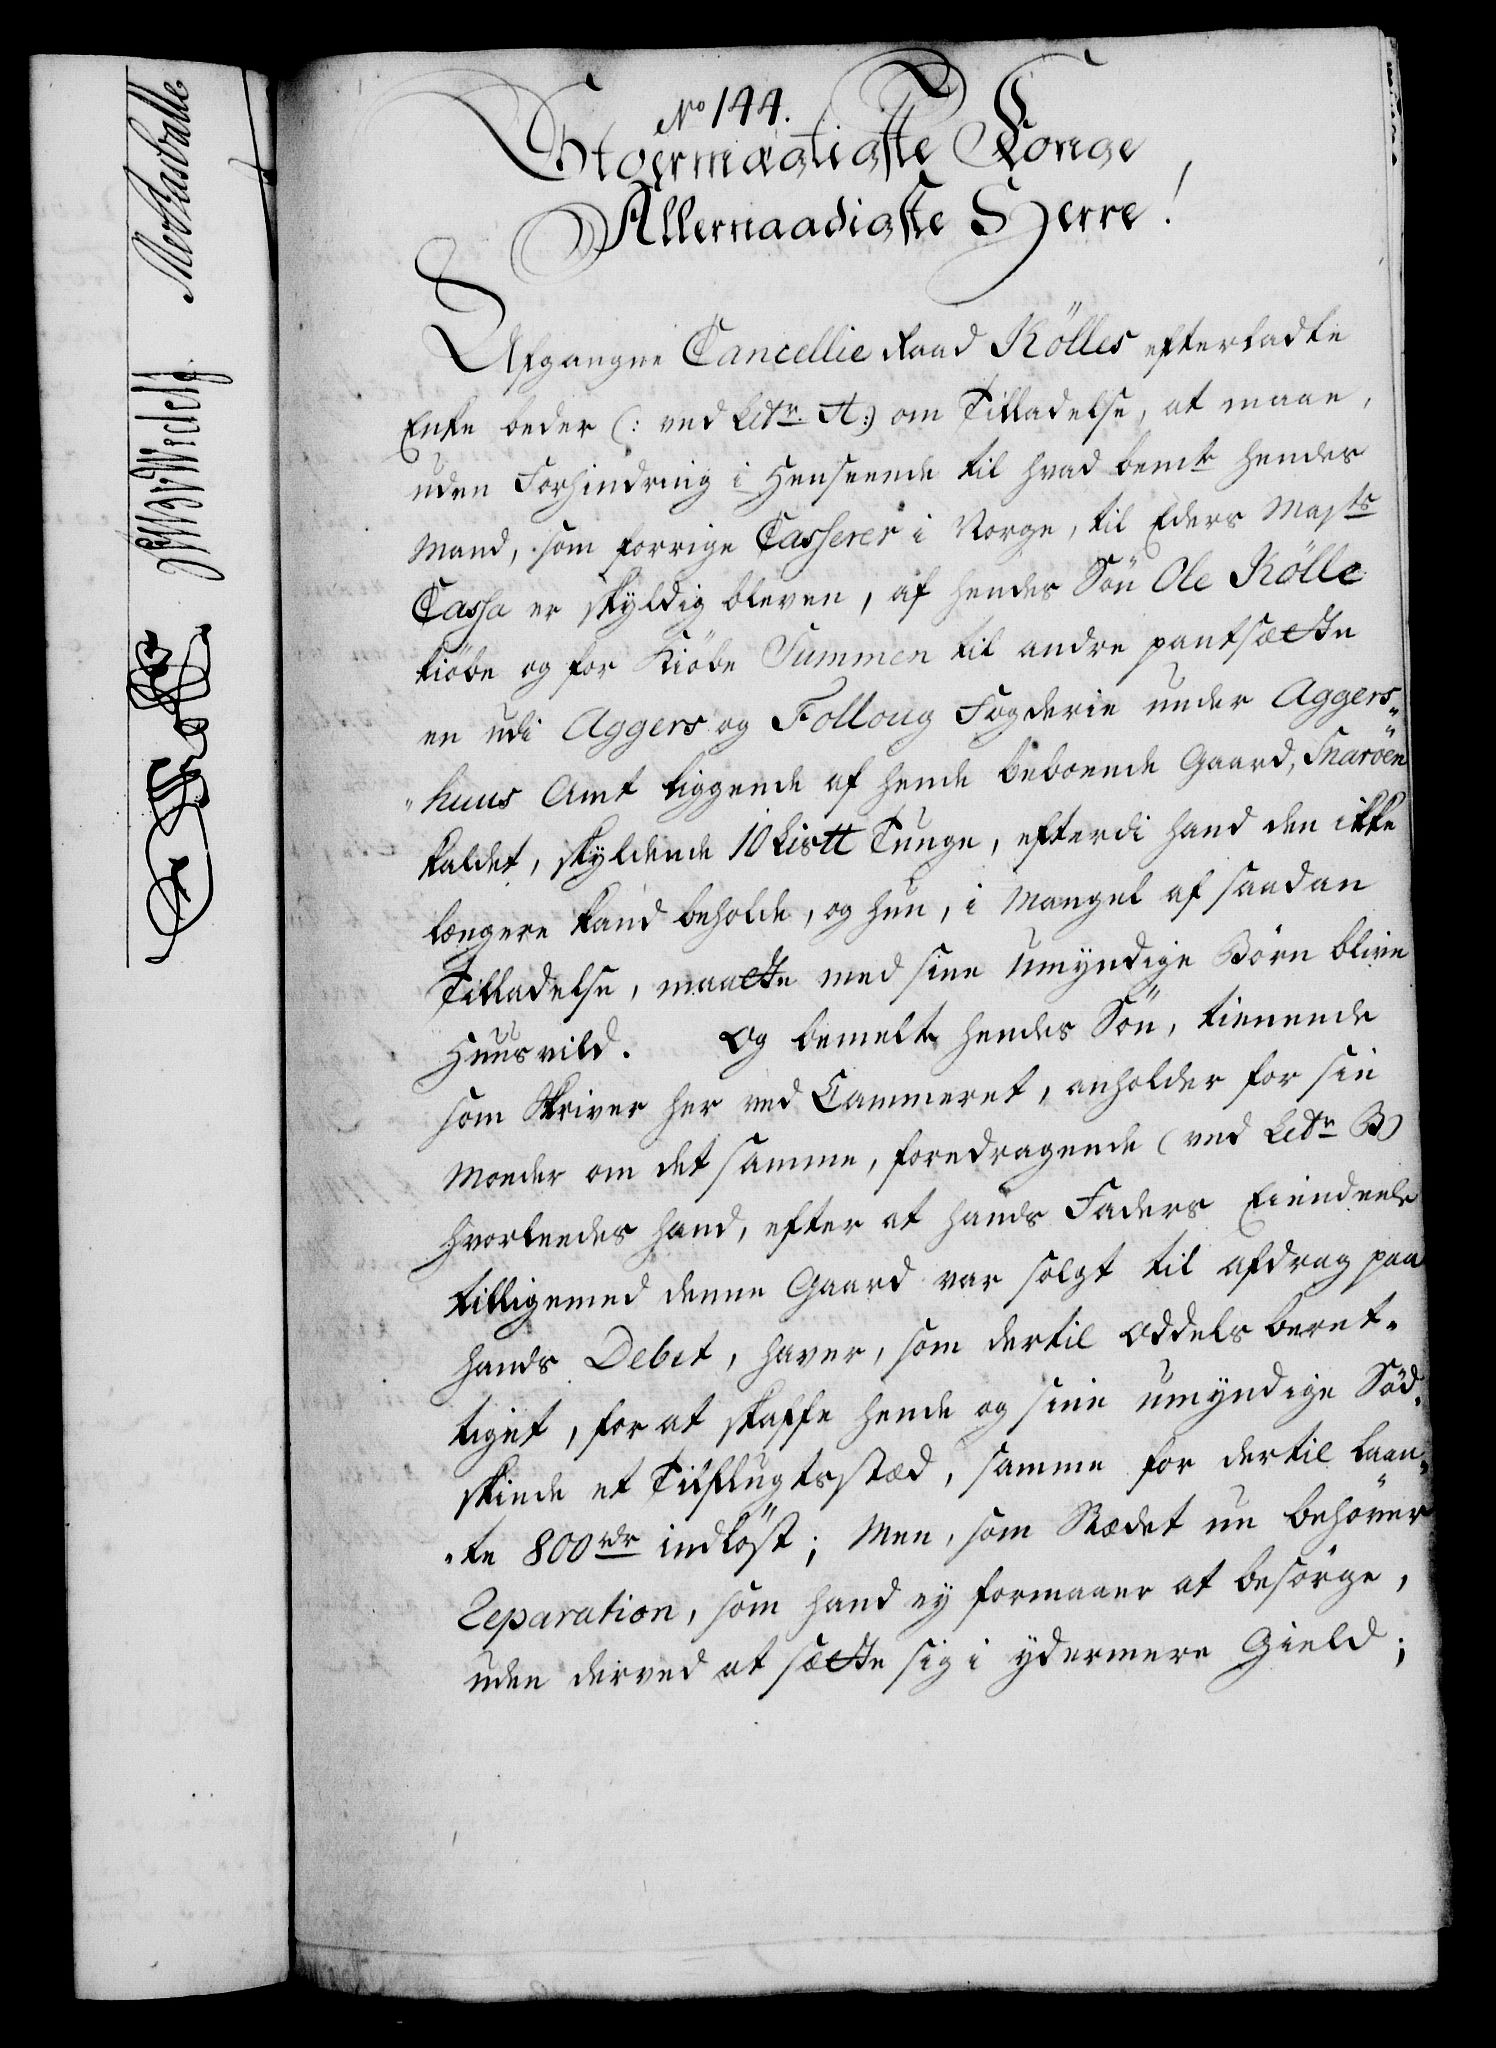 No 144.
Stoermægtigste Konge
Allernaadigste Herre!
Afgangne Cancellie Raad Kölles efterladte
Enke beder (: ved Littr. A:) om Tilladelse, at maae,
uden Forhindring i Henseende til hvad bemte hendes
Mand, som forrige Casserer i Norge, til Eders Mayts
Cassa er skyldig bleven, af hendes Sön Ole Kölle
kiöbe og for Kiöbe Summen til andre pantsætte
en udi Aggers og Folloug Fogderie under Aggers-
huus Amt liggende af hende beboende Gaard, Snaröen
kaldet, skyldende 10 Lis℔ Tunge, efterdi hand den ikke
længere kand beholde, og hun, i Mangel af saadan
Tilladelse, maatte med sine umyndige Börn blive
Huusvild. Og bemelte hendes Sön, tienende
som Skriver her ved Cammeret, anholder for sin
Moeder om det samme, foredragende (ved Littr B)
hvorleedes hand, efter at hands Faders Eiendeele
tilligemed denne Gaard var solgt til afdrag paa
hands Debet, haver, som dertil Oddelsberet-
tiget, for at skaffe hende og sine umyndige Söd-
skinde et Tilflugtsstæd, samme for dertil laan-
te 800 rdr indlöst; Men, som Stædet nu behöver
Reparation, som hand ey formaaer at besörge,
uden derved at sætte sig i ydermere Gield;